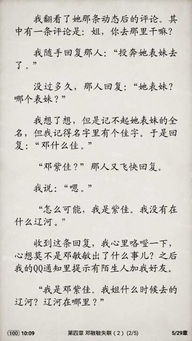 我翻看了她那条动态后的评论。其
中有一条评论是：姐，你去那里干嘛？
我随手回复那人："投奔她表妹去
了。"
没过多久，那人回复："她表妹？
哪个表妹？"
我想了想，但是记不起她表妹的全
名，但我记得名字里有个佳字。于是回
复："邓什么佳。"
"邓紫佳？"那人又飞快回复。
我说："嗯。"
"怎么可能，我是紫佳。我没有在
什么辽河。"
收到这条回复，我心里咯噔一下，
心想莫不是邓敏敏出了什么事儿？之后
我的QQ通知里提示有陌生人加我好友。
"我是邓紫佳。我姐什么时候去的
辽河？辽河在哪里？"
100 10:09 第四章 邓敏敏失联（2）(2/5) 5/29章